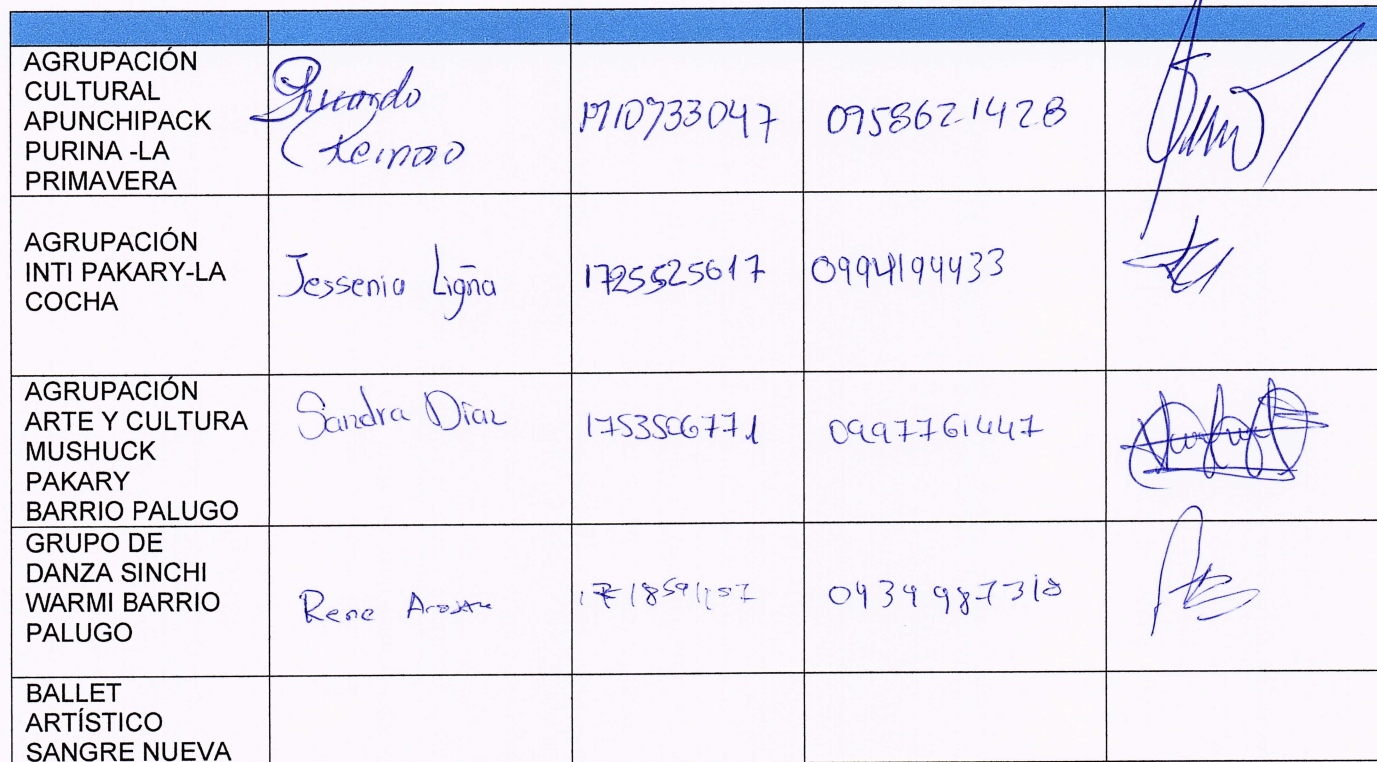 AGRUPACIÓN
CULTURAL
APUNCHIPACK
PURINA -LA
PRIMAVERA
0958621428
AGRUPACIÓN
INTI PAKARY-LA
COCHA
Jessenia Ligña
1725525617
0994194433
AGRUPACIÓN
ARTE Y CULTURA
MUSHUCK
PAKARY
BARRIO PALUGO
Sandra Díaz
1753506771
0997761447
GRUPO DE
DANZA SINCHI
WARMI BARRIO
PALUGO
Rene
BALLET
ARTÍSTICO
SANGRE NUEVA